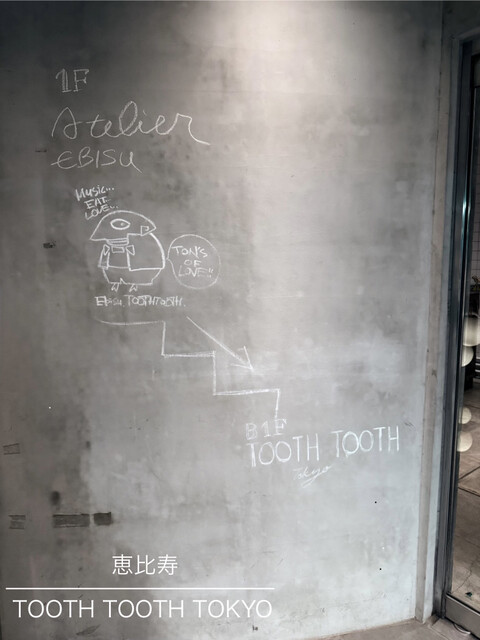 1F
Atelier
EBISU
Music...
EAT
LOVE...
TON'S
OF
LOVE!!
Ebisu TOOTHTOOTH.
B1F
TOOTH TOOTH
Tokyo
恵比寿
TOOTH TOOTH TOKYO